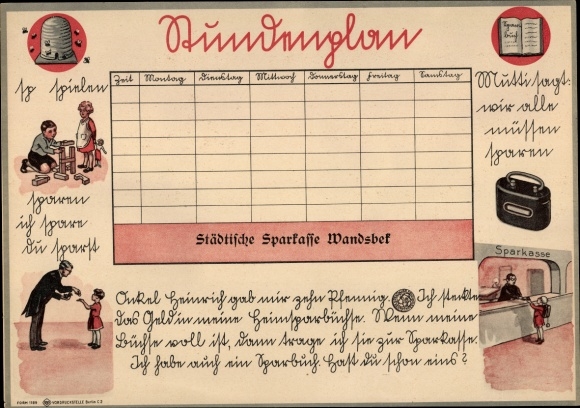 Stundenplan
Spar
buch
Zeit Montag Dienstag Mittwoch Donnerstag Freitag Samstag
sp spielen
sparen
ich spare
du sparst
Mutti sagt:
wir alle
müssen
sparen
Städtische Sparkasse Wandsbek
Sparkasse
Onkel Heinrich gab mir zehn Pfennig. Ich steckte
das Geld in meine Heimsparbüchse. Wenn meine
Büchse voll ist, dann trage ich sie zur Sparkasse.
Ich habe auch ein Sparbuch. Hast du schon eins?
FORM 1188 VORDRUCKSTELLE Berlin C 2